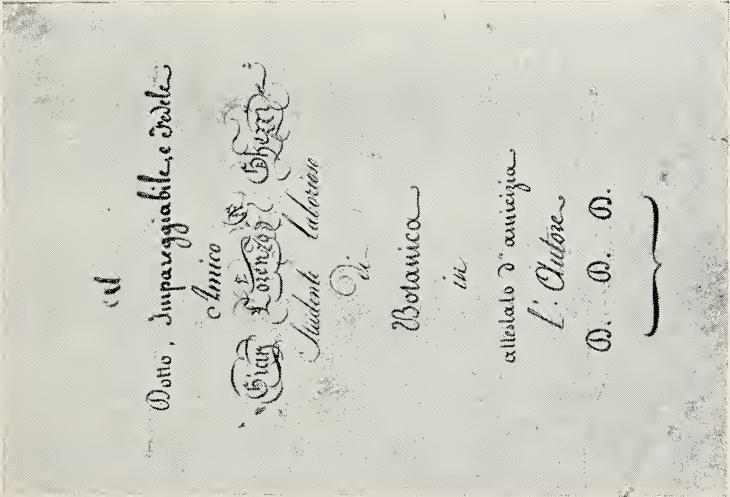 Al
Dotto, Impareggiabile, e Fedele
Amico
Gian Lorenzo
Studente laborioso
di
Botanica
in
attestato d'amicizia
L'Autore
D. D. D.